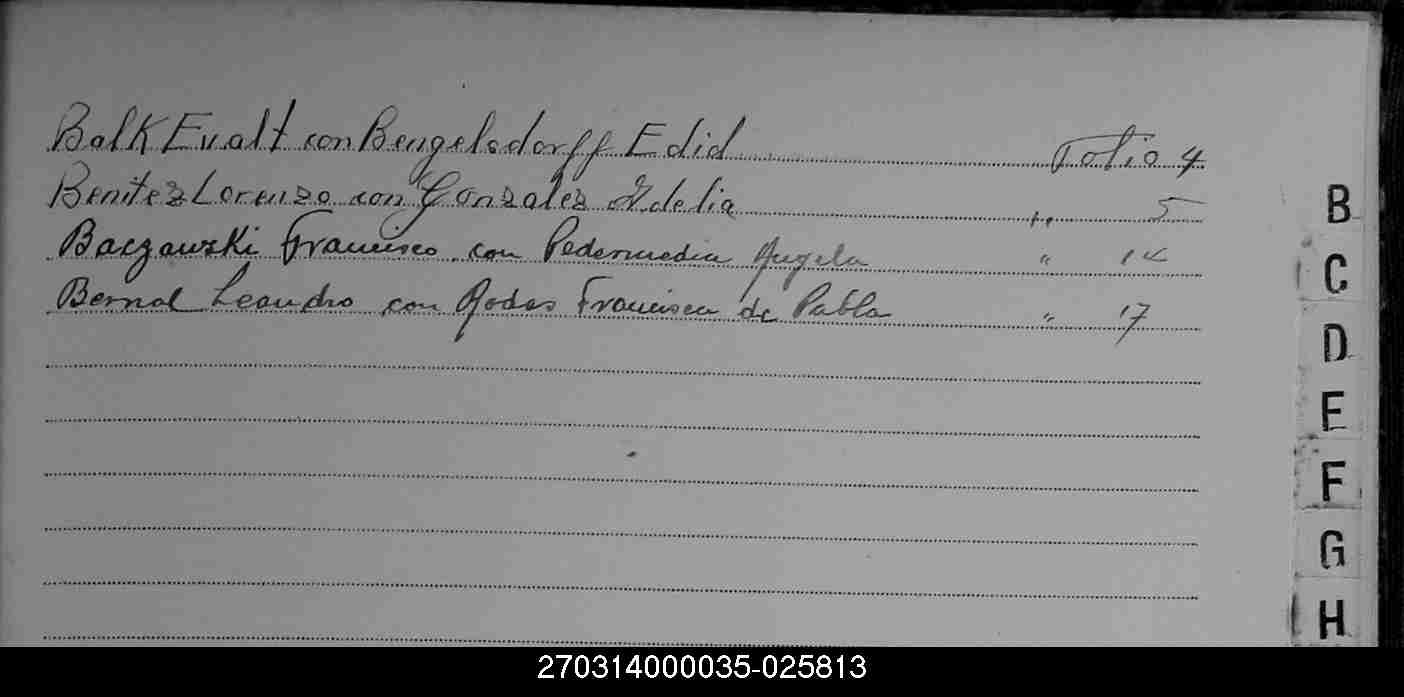 Balk Evalt con Bengelsdorff Edid Folio 4
Benitez Lorenzo con Gonzalez Idelia " 5
Baczawski Francisco con Angela " 14
Bernal Leandro con Rodas Francisca de Pabla " 17
B
C
D
E
F
G
H
270314000035-025813